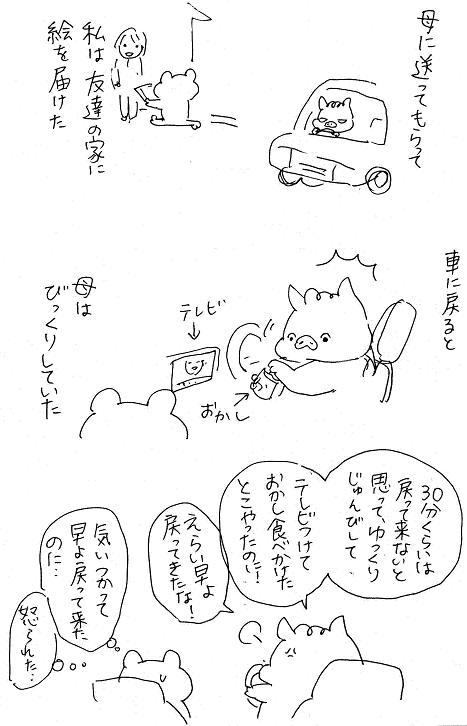 母に送ってもらって
私は友達の家に
絵を届けた
車に戻ると
テレビ
おかし
お
母は
びっくりしていた
30分くらいは
戻って来ないと
思って、ゆっくり
じゅんびして
テレビつけて
おかし食べかけた
とこやったのに!
えらい早よ
戻ってきたな!
気いつかって
早よ戻って来た
のに…
怒られた…